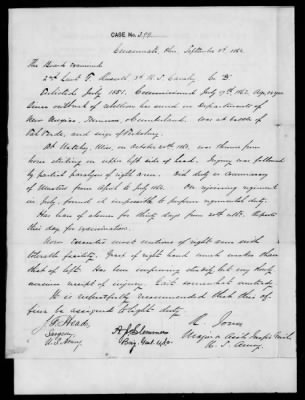 CASE No. 399
Cincinnati, Ohio, September 5th 1866.
The Board examined
2nd Lieut T. Russell 3d U.S. Cavalry Co "B"
Enlisted July 1851. Commissioned July 17th 1862. Age
Since outbreak of rebellion has served in departments of
New Mexico, Tennessee, & Cumberland. Was at battle of
and siege of Vicksburg.
At Natchez, Miss, on October 20th 1863, was thrown from
horse striking on upper left side of head. Injury was followed
by partial paralysis of right arm. Did duty as commissary
of Musters from April to July 1866. On rejoining regiment
in July, found it impossible to perform regimental duty.
Has leave of absence for thirty days from 20th ult. Reports
this day for examination.
Now executes most motions of right arm with
tolerable facility. Grasp of right hand much weaker than
that of left. Has been improving slowly but very
since receipt of injury. Gait somewhat unsteady.
It is respectfully recommended that this of-
ficer be assigned to light duty.
J. F. Head,
Surgeon
U.S. Army
A. J. Slemmer
Brig. Genl
R. Jones
Major & Asst Insp Genl
U.S. Army